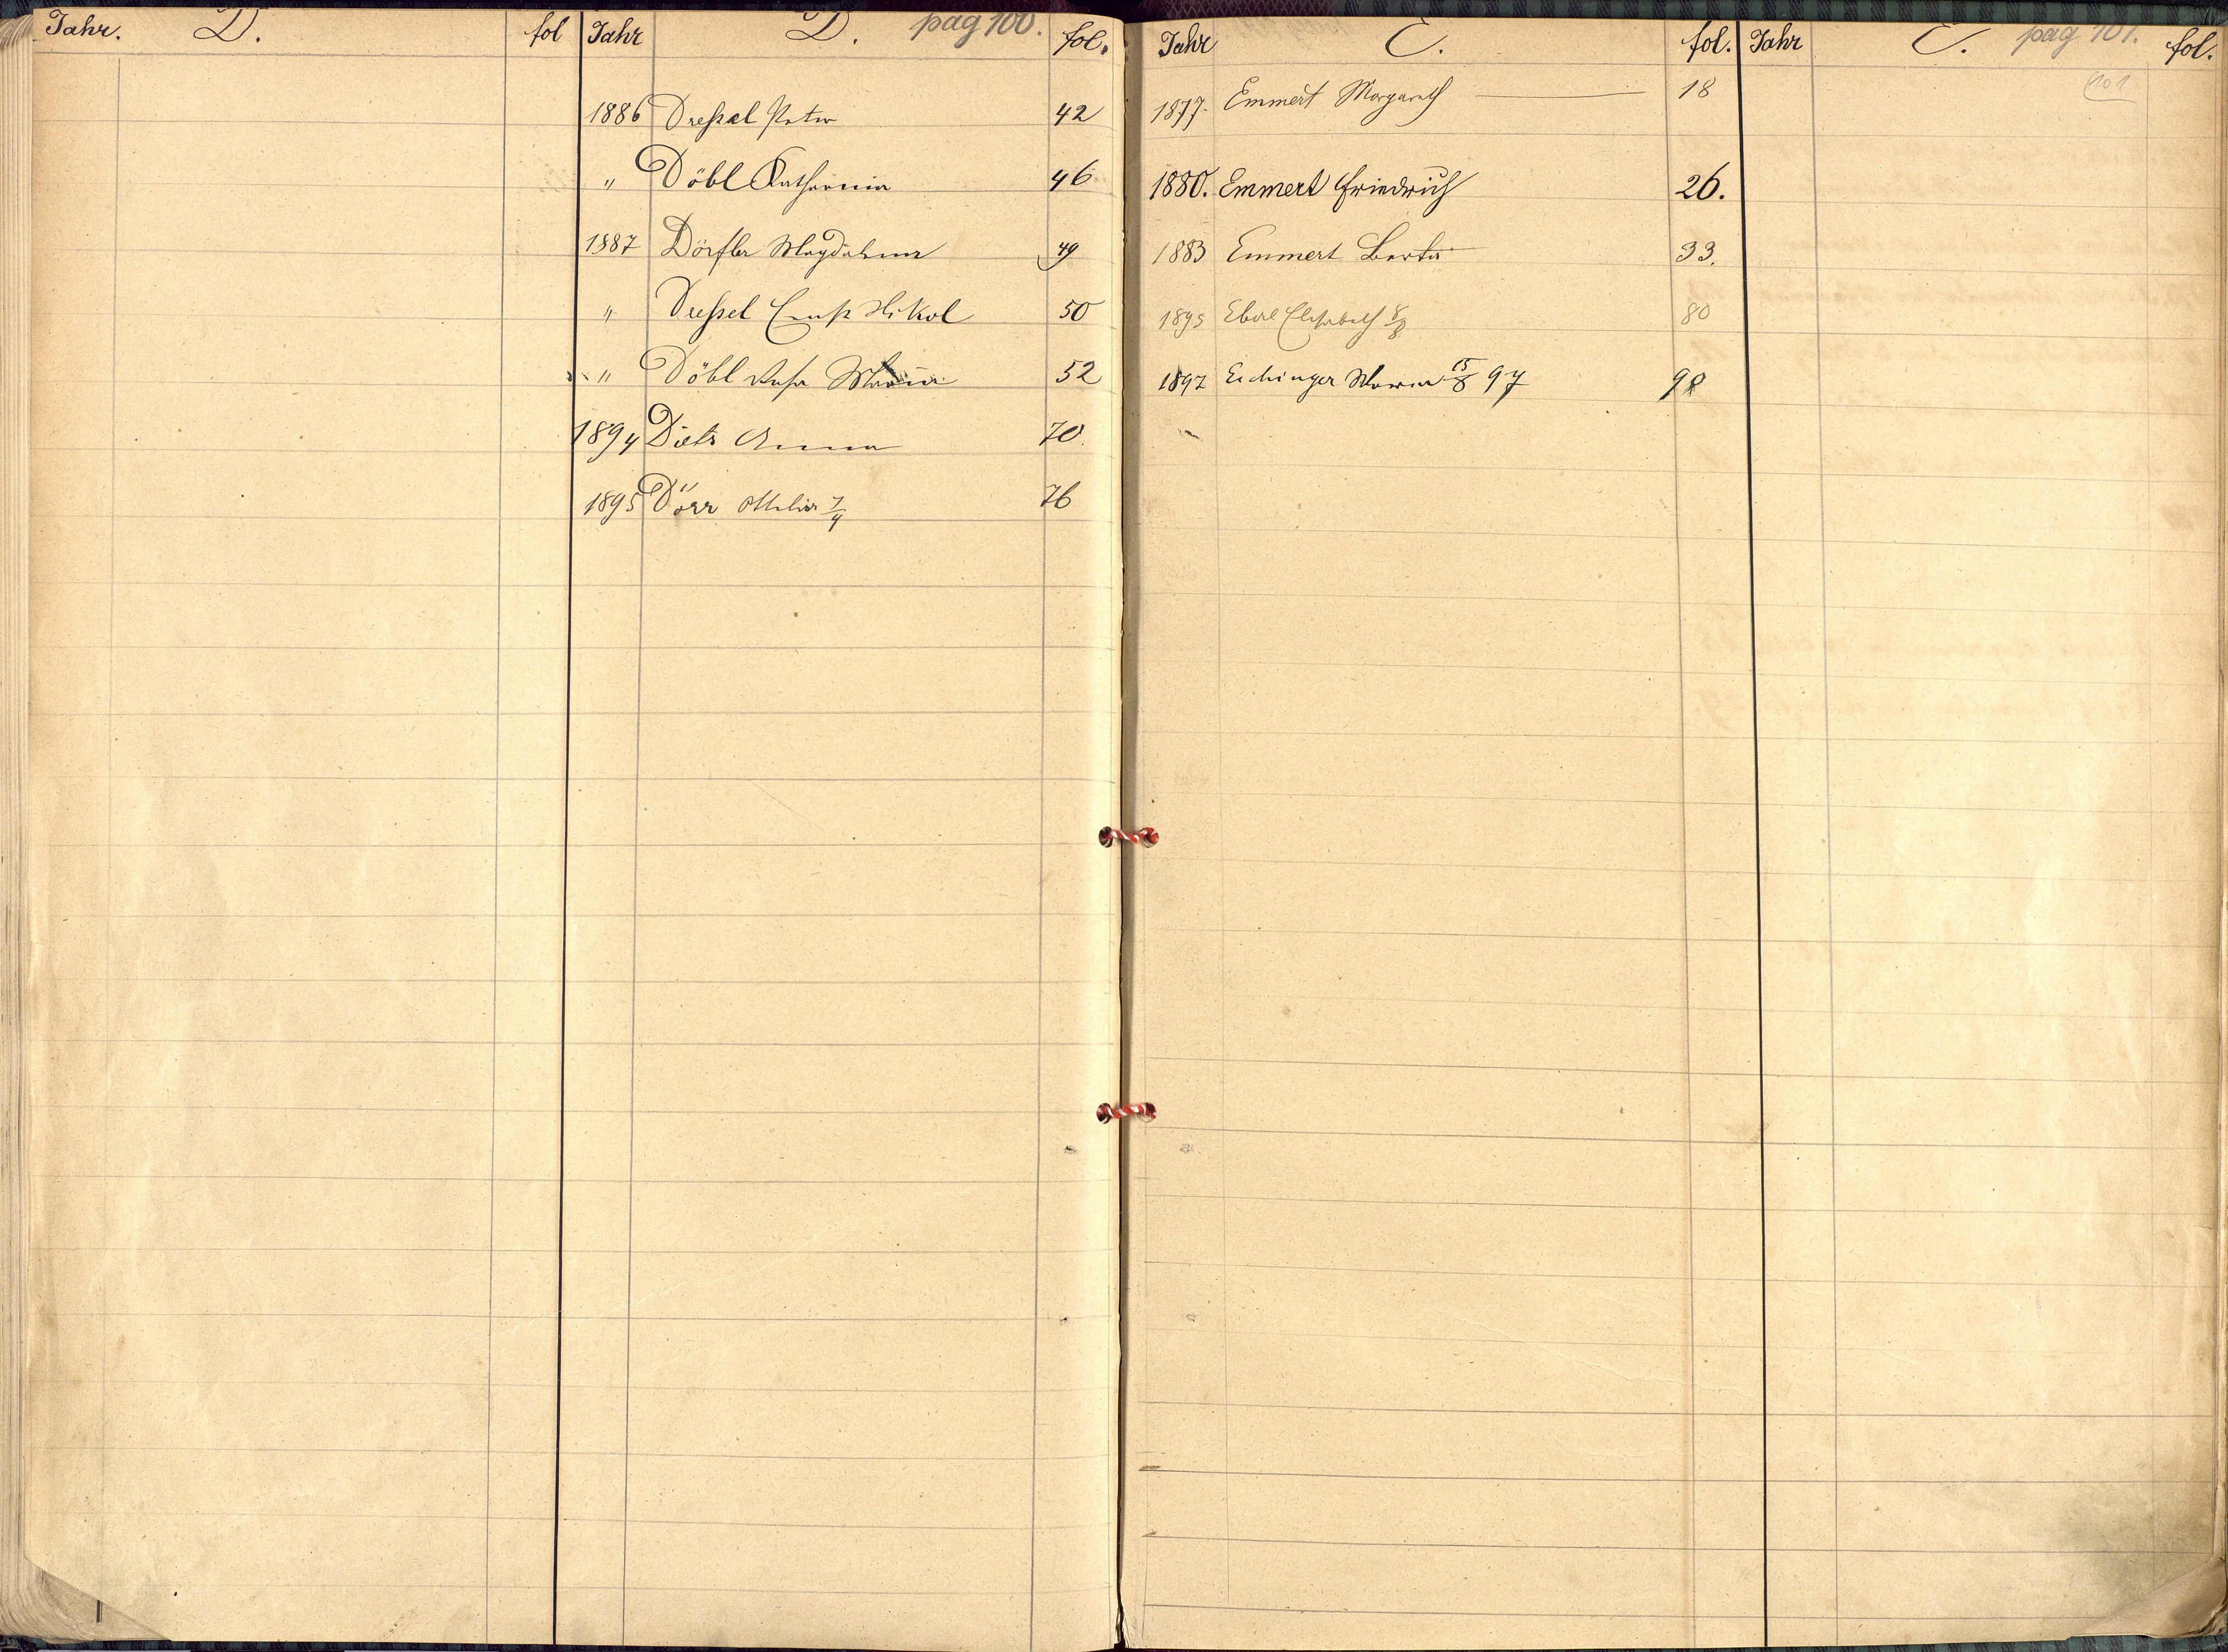 Jahr. D. fol Jahr D. pag 100. fol.
1886 Dressel Peter 42
" Döbl Katharina 46
1887 Dörfler Magdalena 49
" Dressel Ernst Nikol 50
" Döbl Maria 52
1894 Dietz Anna 70
1895 Dörr Ottilia 7/4 76
Jahr E. fol. Jahr E. pag 101. fol.
101
1877. Emmert Margareth 18
1880. Emmert Friedrich 26.
1883 Emmert Berta 33.
1895 Eberl Elisabeth 8/8 80
1897 Eichinger Maria 15/8 97 98